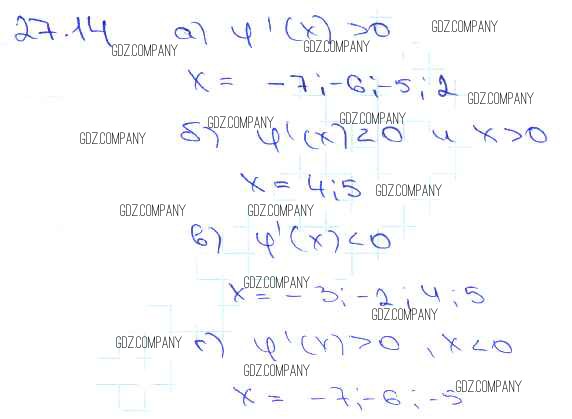 27.14 а) φ'(x) >0 GDZ.COMPANY
GDZ.COMPANY GDZ.COMPANY
x = -7; -6; -5; 2
GDZ.COMPANY
GDZ.COMPANY GDZ.COMPANY
GDZ.COMPANY б) φ'(x) <0 и x>0
x = 4; 5 GDZ.COMPANY
GDZ.COMPANY GDZ.COMPANY
в) φ'(x) <0
GDZ.COMPANY
x = -3; -2; 4; 5
GDZ.COMPANY
GDZ.COMPANY г) φ'(x) >0, x<0
GDZ.COMPANY
x = -7; -6; -5 GDZ.COMPANY